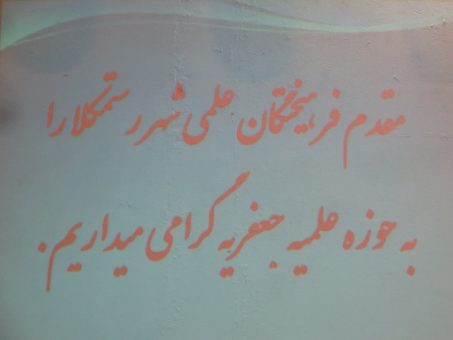 مقدم فرهیختگان علمی شهر رستمکلا را
به حوزه علمیه جعفریه گرامی میداریم.